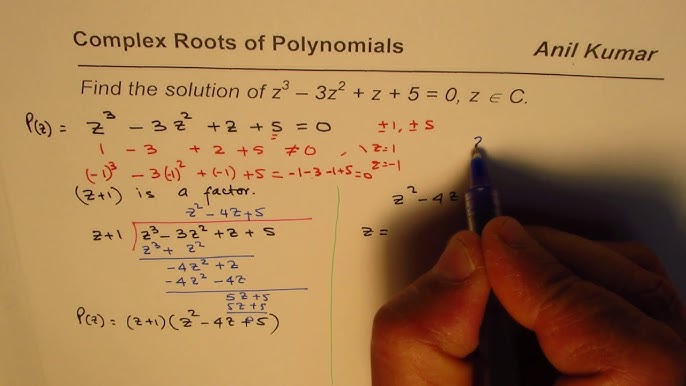 Complex Roots of Polynomials Anil Kumar
Find the solution of z³ – 3z² + z + 5 = 0, z ∈ C.
P(z) = z³ - 3z² + z + 5 = 0 ±1, ±5
1 - 3 + 2 + 5 ≠ 0, \ z=1
(-1)³ - 3(-1)² + (-1) + 5 = -1-3-1+5=0 z=-1
(z+1) is a factor.
z² - 4z + 5
z+1 z³ - 3z² + z + 5
z³ + z²
-4z² + z
-4z² - 4z
5z + 5
5z + 5
P(z) = (z+1)(z² - 4z + 5)
z² - 4z
z =